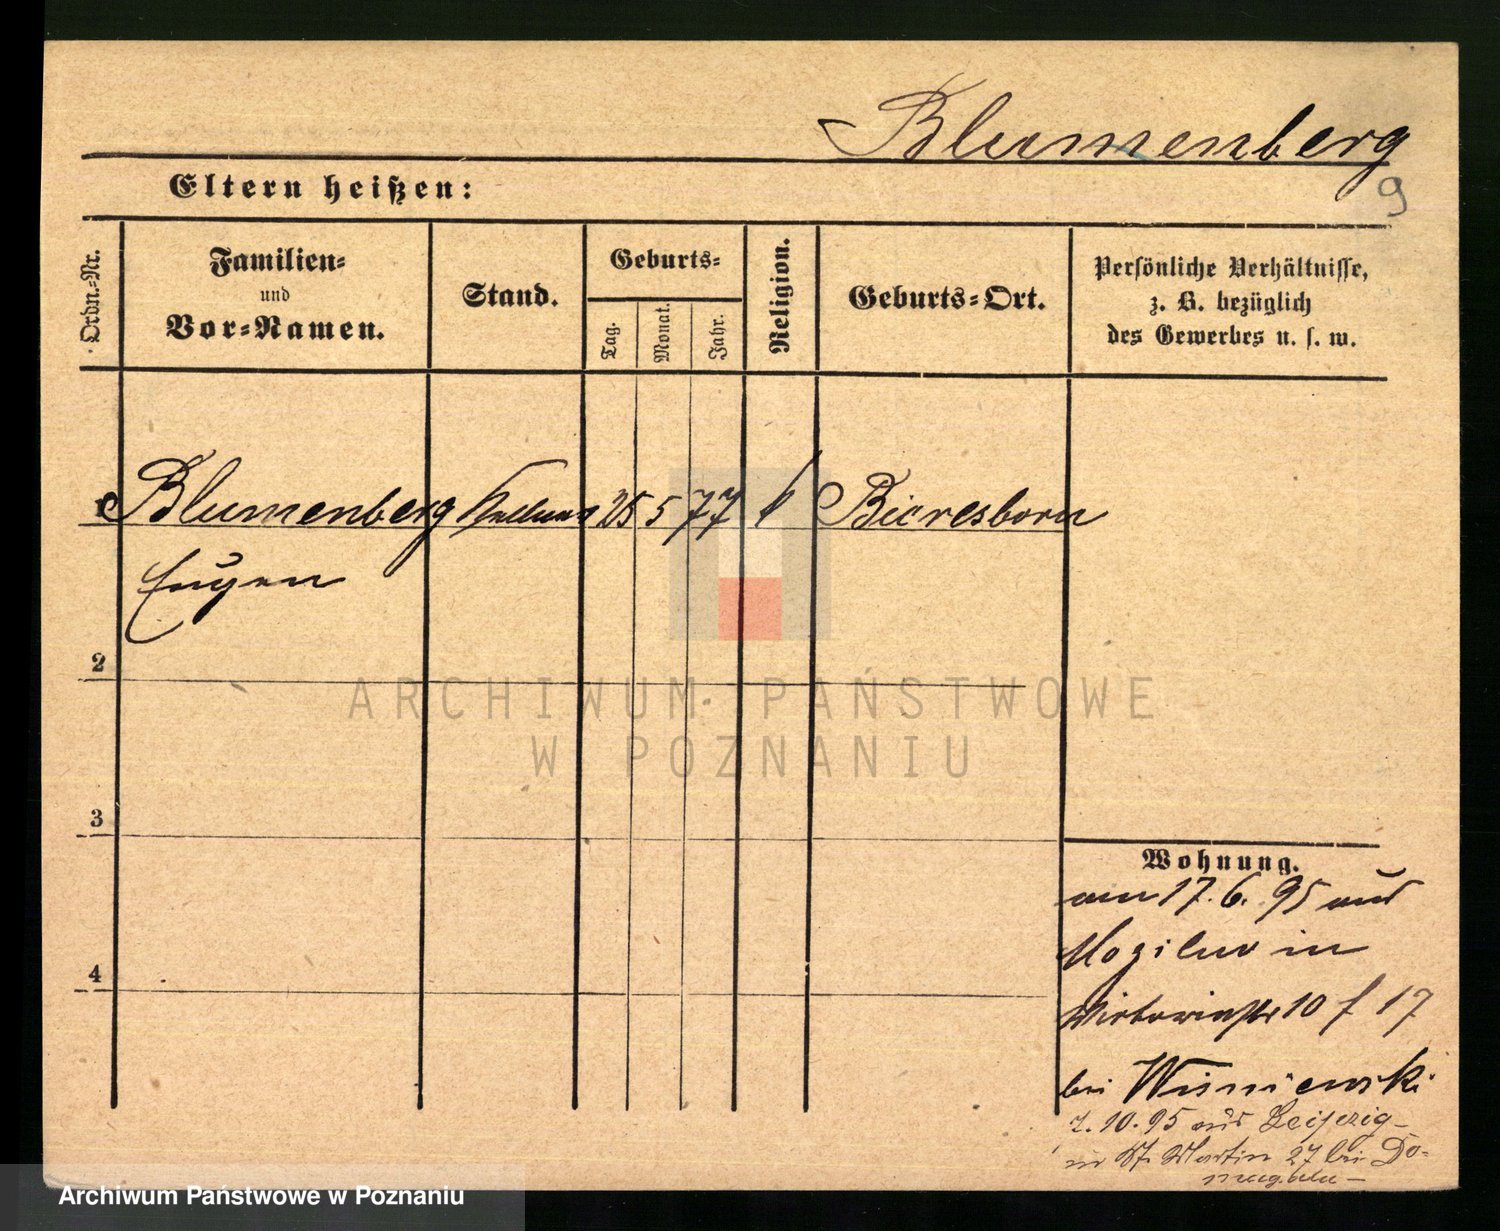 Blumenberg
9
Eltern heißen:
Ordn.-Nr.
Familien-
und
Vor-Namen.
Stand.
Geburts-
Tag.
Monat.
Jahr.
Religion.
Geburts-Ort.
Persönliche Verhältnisse,
z. B. bezüglich
des Gewerbes u. s. w.
1 Blumenberg Kellner 25 5 77 k Bieresborn
Eugen
2
3
4
Wohnung.
am 17.6.95 aus
Mogilno in
Victoriastr 10 f 17
bei Wisniewski
7.10.95 aus Leipzig
in St. Martin 27 bei Do-
ARCHIWUM PAŃSTWOWE
W POZNANIU
Archiwum Państwowe w Poznaniu